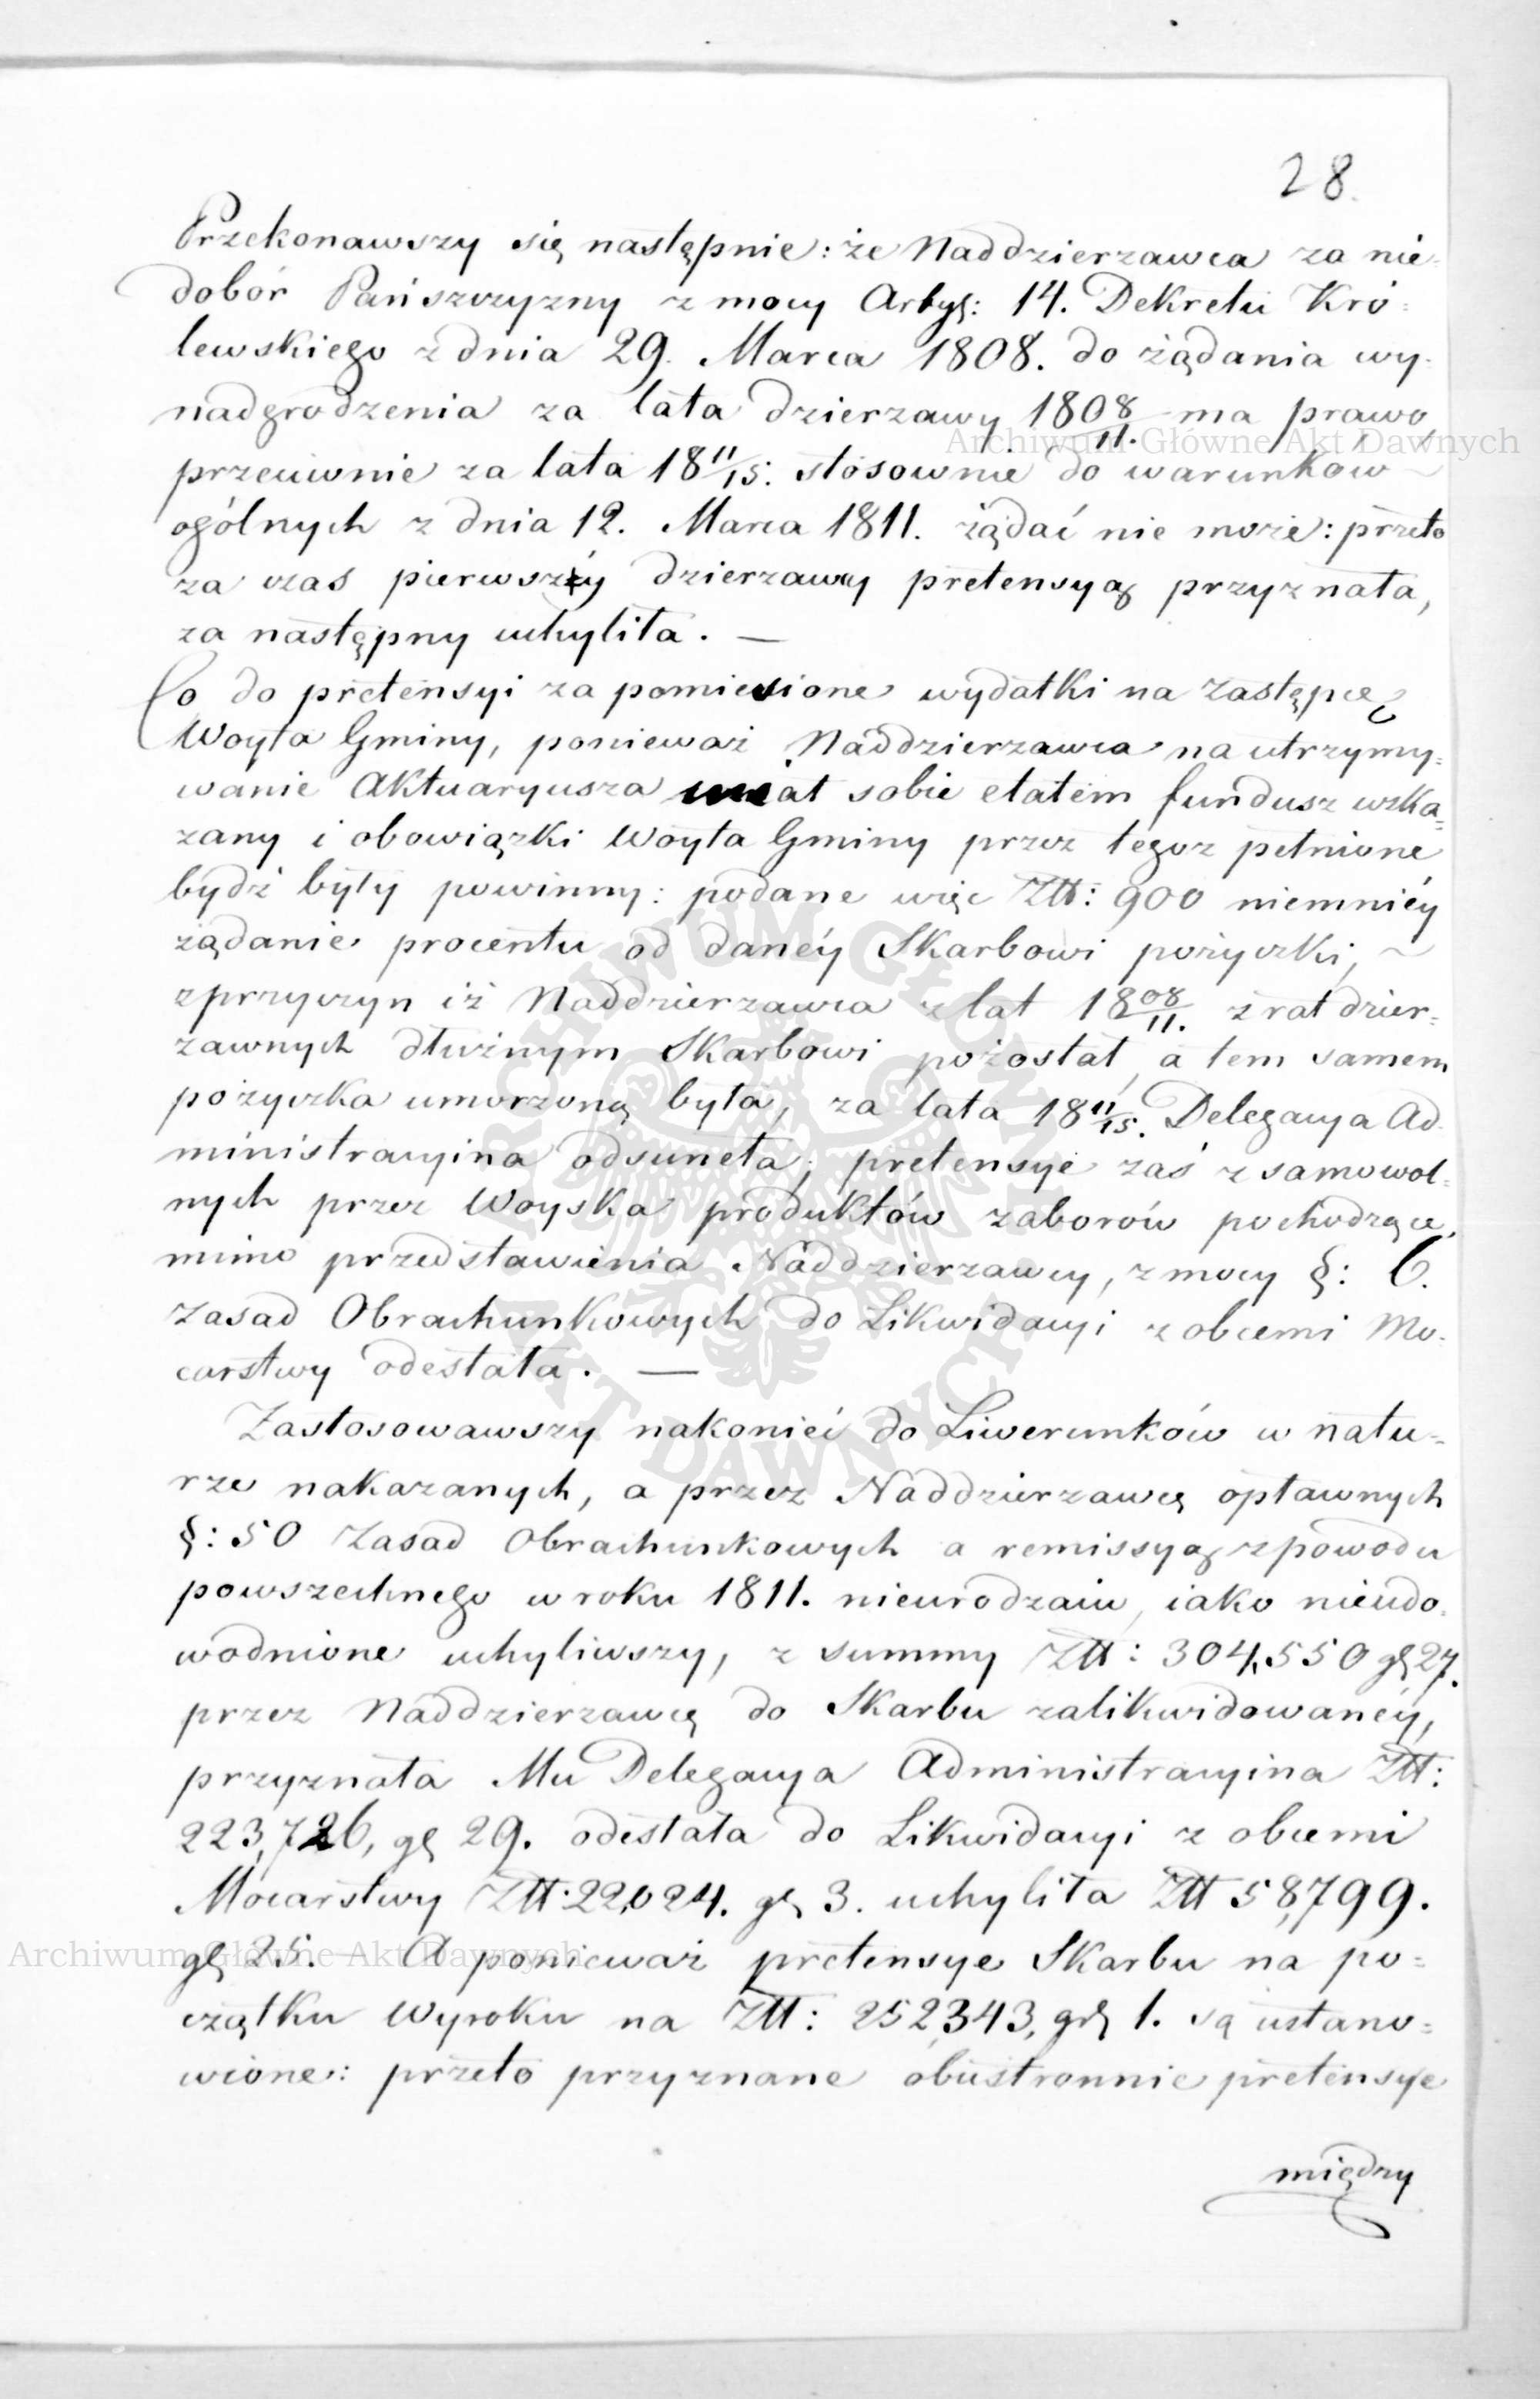 28.
Przekonawszy się następnie: że Naddzierzawca za nie-
dobór Pańszczyzny z mocy Artyk: 14. Dekretu Kró-
lewskiego z dnia 29. Marca 1808. do żądania wy-
nadgrodzenia za lata dzierzawy 1808/11. ma prawo,
przeciwnie za lata 18 11/15: stosownie do warunkow
ogólnych z dnia 12. Marca 1811. żądać nie może: przeto
za czas pierwszéy dzierzawy pretensyą przyznała,
za następny uchyliła. —
Co do pretensyi za pomienione wydatki na Zastępcę
Woyta Gminy, ponieważ Naddzierzawca na utrzymy-
wanie Aktuaryusza miał sobie etatem fundusz wska-
zany i obowiązki Woyta Gminy przez tegoz pełnione
bydź były powinny: podane więc Złł: 900 niemniéy
żądanie procentu od danéy Skarbowi pożyczki, ~
z przyczyn iż Naddzierzawca z lat 1808/11. z rat dzier-
zawnych dłużnym Skarbowi pozostał, a tem samem
pożyczka umorzoną była, za lata 18 11/15. Delegacya Ad-
ministracyina odsuneła; pretensye zaś z samowol-
nych przez Woyska produktów zaborów pochodzące,
mimo przedstawienia Naddzierzawcy, z mocy §: 6.
Zasad Obrachunkowych do Likwidacyi z obcemi Mo-
carstwy odesłała. —
Zastosowawszy nakonieć do Liwerunków w natu-
rze nakazanych, a przez Naddzierzawcę opławnych
§: 50 Zasad Obrachunkowych a remissyą z powodu
powszechnego w roku 1811. nieurodzaiu, iako nieudo-
wodnione uchyliwszy, z summy Złł: 304,550 gr 27.
przez Naddzierzawcę do Skarbu zalikwidowanéy,
przyznała Mu Delegacya Administracyina Złł:
223,726, gr 29. odesłała do Likwidacyi z obcemi
Mocarstwy Złł: 22,024. gr 3. uchyliła Złł 58,799.
gr 25. — A ponieważ pretensye Skarbu na po-
czątku Wyroku na Złł: 252,343, gr 1. są ustano-
wione: przeto przyznane obustronnie pretensye
między
Archiwum Główne Akt Dawnych
Archiwum Główne Akt Dawnych
ARCHIWUM GŁÓWNE AKT DAWNYCH